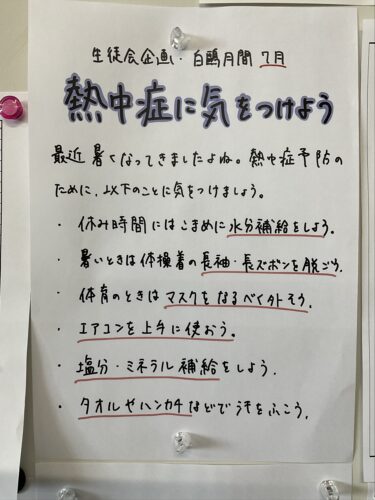 生徒会企画・白鷗月間 7月
熱中症に気をつけよう
最近暑くなってきましたよね。熱中症予防の
ために、以下のことに気をつけましょう。
・休み時間にはこまめに水分補給をしよう。
・暑いときは体操着の長袖・長ズボンを脱ごう。
・体育のときはマスクをなるべく外そう。
・エアコンを上手に使おう。
・塩分・ミネラル補給をしよう。
・タオルやハンカチなどで汗をふこう。